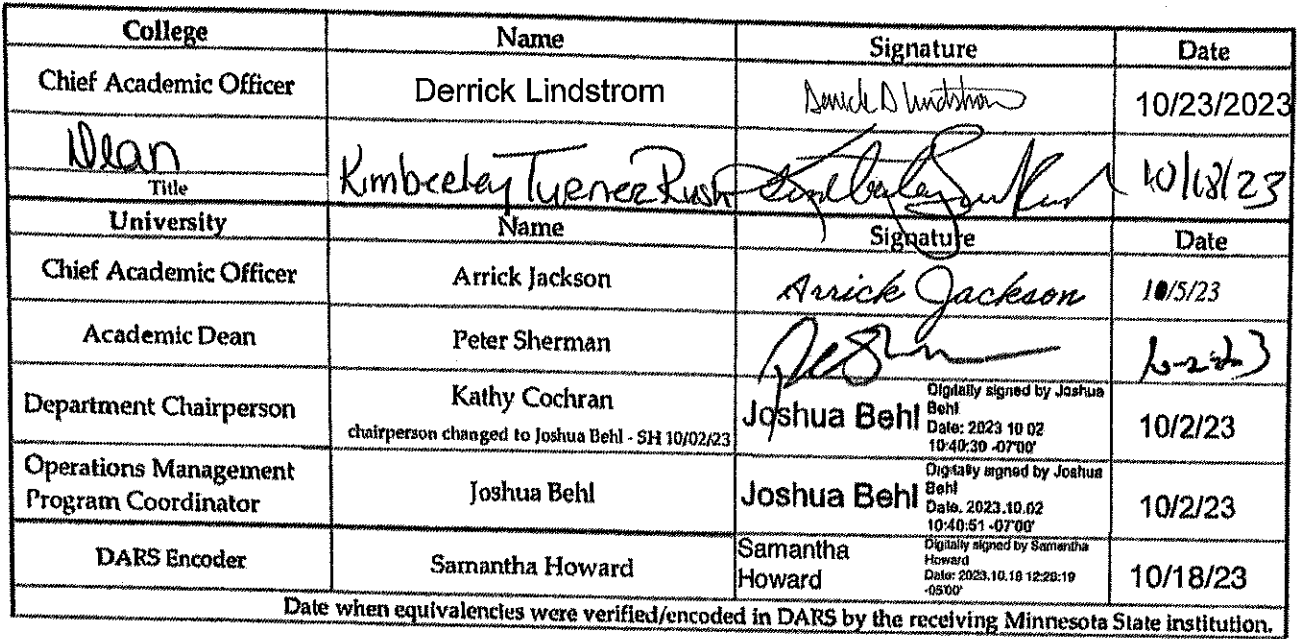 College Name Signature Date
Chief Academic Officer Derrick Lindstrom Derrick D Lindstrom 10/23/2023
Dean Kimberley Turner Rush 10/18/23
Title
University Name Signature Date
Chief Academic Officer Arrick Jackson Arrick Jackson 10/5/23
Academic Dean Peter Sherman
Department Chairperson Kathy Cochran Joshua Behl Digitally signed by Joshua Behl Date: 2023 10 02 10:40:30 -07'00' 10/2/23
chairperson changed to Joshua Behl - SH 10/02/23
Operations Management
Program Coordinator Joshua Behl Joshua Behl Digitally signed by Joshua Behl Date. 2023.10.02 10:40:51 -07'00' 10/2/23
DARS Encoder Samantha Howard Samantha Howard Digitally signed by Samantha Howard Date: 2023.10.18 12:28:19 -05'00' 10/18/23
Date when equivalencies were verified/encoded in DARS by the receiving Minnesota State institution.